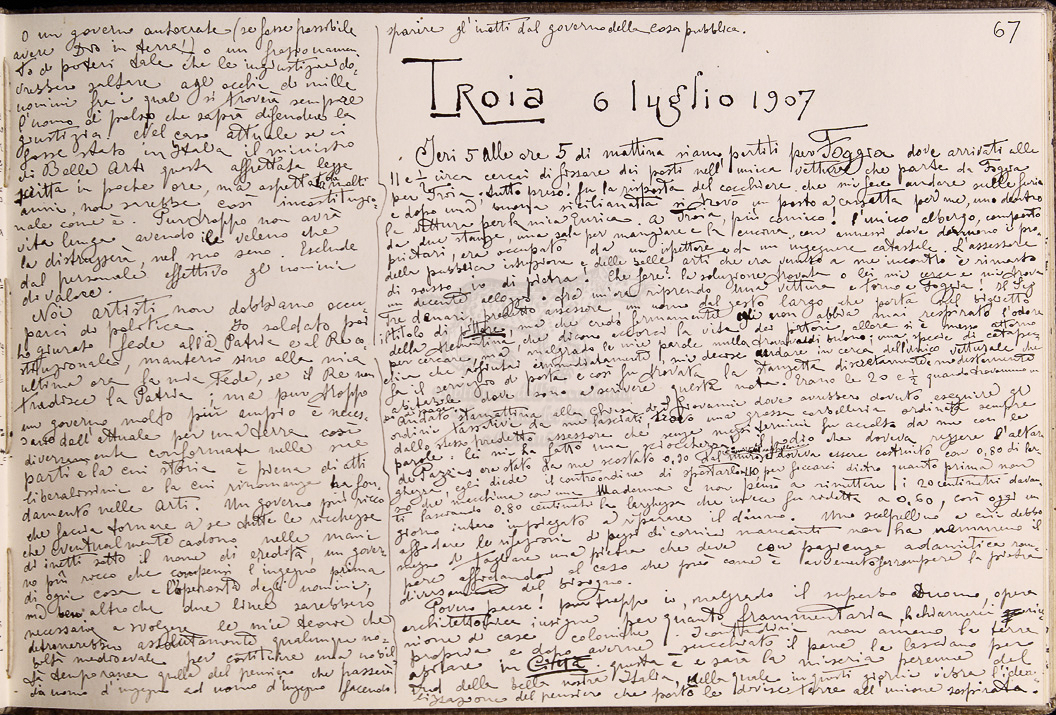 o un governo autocrate (se fosse possibile
avere Dio in terra!) o un frazionamen-
to di poteri tale che le ingiustizie do-
vessero saltare agli occhi di mille
uomini fra i quali si troverà sempre
l'uomo di polso che saprà difendere la
giustizia. Nel caso attuale se ci
fosse stato in Italia il ministro
di Belle Arti questa affrettata legge
scritta in poche ore, ma aspettata da molti
anni, non sarebbe così incostituzio-
nale come è. Purtroppo non avrà
vita lunga avendo il veleno che
la distruggerà, nel suo seno. Esclude
dal personale effettivo gli uomini
di valore.
Noi Artisti non dobbiamo occu
parci di politica. Io soldato poi
ho giurato fede alla Patria e al Re co-
stituzionale, manterrò sino alla mia
ultima ora la mia fede, se il Re non
tradisce la Patria; ma pur troppo
un governo molto più ampio è neces-
sario dell'attuale per una terra così
diversamente conformata nelle sue
parti e la cui storia è piena di atti
liberalissimi e la cui rinomanza ha fon-
damento nelle Arti. Un governo più ricco
che faccia tornare a se tutte le ricchezze
che eventualmente cadono nelle mani
di inetti sotto il nome di eredità, un gover-
no più ricco che compensi l'ingegno prima
di ogni cosa e l'operosità degli uomini;
ma ben altro che due linee sarebbero
necessarie a svolgere le mie teorie che
detronerebbero assolutamente qualunque no-
biltà medioevale per costituire una nobil
tà temporanea quella del pensiero che passerà
da uomo d'ingegno ad uomo d'ingegno facendo
sparire gl'inetti dal governo della cosa pubblica.
67
Troia 6 luglio 1907
Ieri 5 alle ore 5 di mattina siamo partiti per Foggia dove arrivati alle
11 e ½ circa cercai di fissare dei posti nell'unica vettura che parte da Foggia
per Troia, tutto preso! fu la risposta del cocchiere che mi fece andare sulle furie
e dopo una buona si trovò un posto a cassetta per me, uno dentro
la vettura per la mia Enrica. A Troia, più comico! l'unico albergo, composto
da due stanze, una sala per mangiare e la con annessi dove dormono i pro-
prietari, era occupato da un ispettore e da un ingegnere catastale. L'assessore
della pubblica istruzione e delle belle arti che era venuto a me incontro è rimasto
di sasso, io di pietra! Che fare? la soluzione trovata o lei mi cerca e mi trova
un decente alloggio o fra un'ora riprendo una vettura e torno a Foggia! Il Sig
Tre denari, predetto assessore un uomo dal gesto largo che porta sul biglietto
il titolo di pittore, ma che credo fermamente non abbia mai respirato l'odore
della trementina che dicono accorci la vita dei pittori, allora si è messo attorno
per cercare, ma, malgrado le mie parole nulla trovando di buono; una specie di
che mi decise andare in cerca dell'unico vetturale che
fa il servizio di posta e così fu trovata la stanzetta discretamente modestamente
abitabile dove sono a scrivere queste note. Erano le 20 e ½ quando trovammo
Andato stamattina alla chiesa di S. Giovanni dove avrebbero dovuto eseguire gli
ordini tassativi da me lasciati, trovo una grossa corbelleria ordinata sempre
dallo stesso predetto assessore che, senza mezzi termini fu accolto da me con le
parole: lei mi ha fatto una sciocchezza, il podio che doveva reggere l'altare
era stato da me scostato 0,20 dai muri e doveva essere costruito con 0,80 di lar-
ghezza, egli diede il contrordine di spostarlo per ficcarci dietro quanto prima non
so che macchina con una Madonna e non pensò a rimettere i 20 centimetri davan-
ti lasciando 0,80 centimetri la larghezza che invece fu ridotta a 0,60, così oggi un
giorno intero impiegato a riparare il danno. Uno scalpellino a cui debbo
affidare le rifazioni di pezzi di cornici mancanti non ha nemmeno il
segno di tagliare una pietra che deve con pazienza adamitica rom-
pere affidandosi al caso che può come è avvenuto far rompere la pietra
diversamente del bisogno.
Povero paese! purtroppo io, malgrado il superbo Duomo, opera
architettonica insigne per quanto frammentaria,
nione di case coloniche. I contadini non amano la terra
propria e dopo averne succhiato il pane la lasciano per
abitare in Città e questa è e sarà la miseria perenne del
sud della bella nostra Italia, nella quale in questi giorni vibra l'idea-
lizzazione del pensiero che portò le divise terre all'unione sospirata.